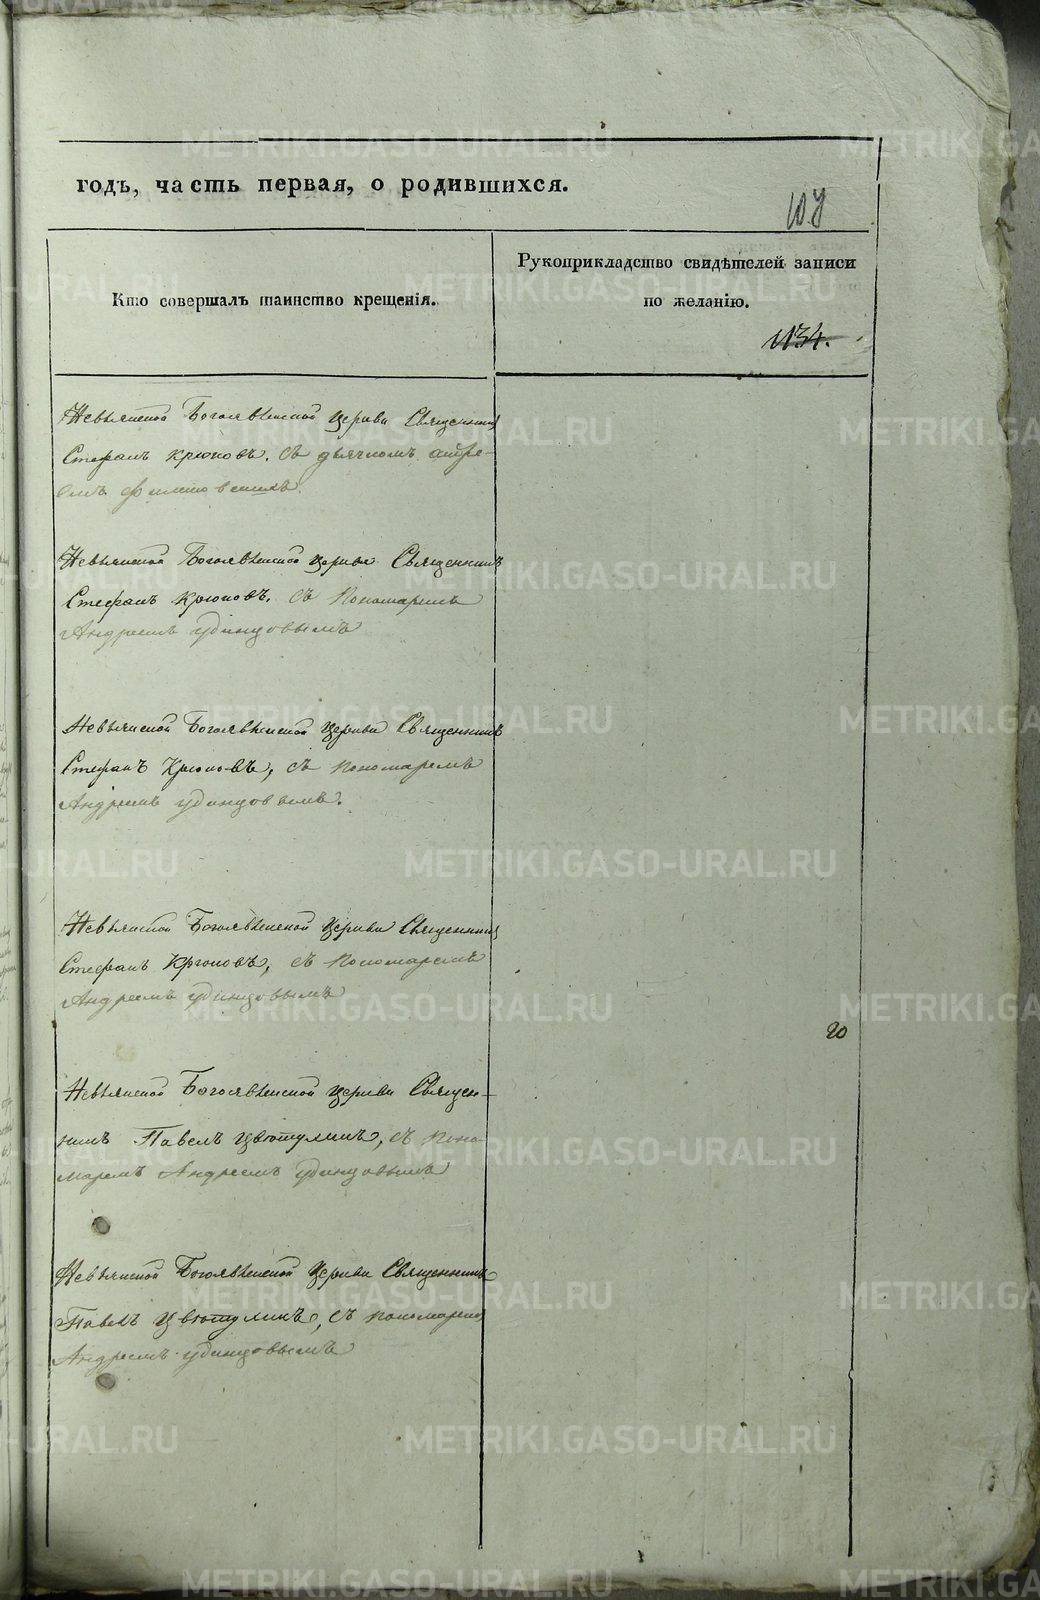 годъ, часть первая, о родившихся.
Кто совершалъ таинство крещенія.
Рукоприкладство свидѣтелей записи
по желанію.
1134.
Невьянской Богоявленской церкви Священникъ
Стефанъ Крюковъ, съ дьячкомъ
Невьянской Богоявленской церкви Священникъ
Стефанъ Крюковъ, съ Пономаремъ
Андреемъ Удинцовымъ
Невьянской Богоявленской церкви Священникъ
Стефанъ Крюковъ, съ пономаремъ
Андреемъ Удинцовымъ.
Невьянской Богоявленской церкви Священникъ
Стефанъ Крюковъ, съ Пономаремъ
Андреемъ Удинцовымъ
20
Невьянской Богоявленской церкви Священ-
никъ Павелъ съ Поно-
маремъ Андреемъ Удинцовымъ
Невьянской Богоявленской церкви Священникъ
Павелъ съ пономаремъ
Андреемъ Удинцовымъ
METRIKI.GASO-URAL.RU